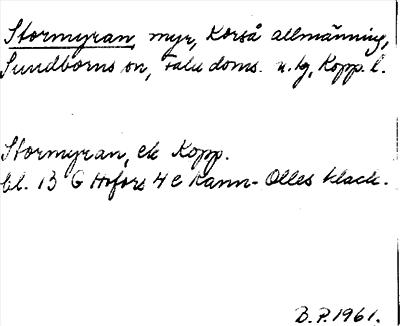 Stormyran, myr, Korså allmänning,
Sundborns sn, Falu doms. n. tg, Kopp. l.
Stormyran, ek Kopp.
bl. 13 G Hofors 4 c Kann-Olles klack.
B.P. 1961.